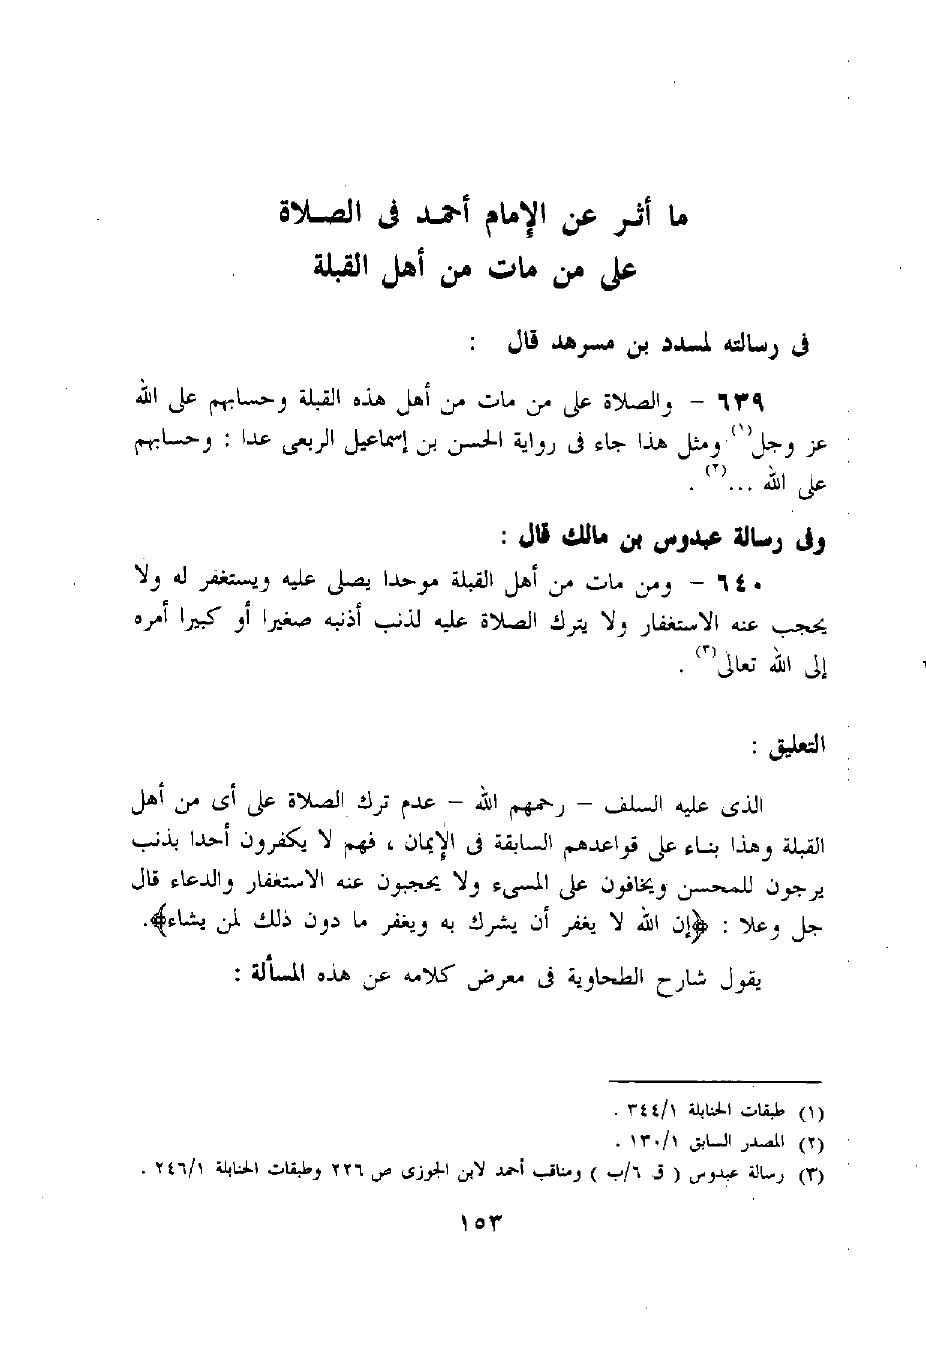 ما أثر عن الإمام أحمد فى الصلاة
على من مات من أهل القبلة
فى رسالته لمسدد بن مسرهد قال :
٦٣٩ – والصلاة على من مات من أهل هذه القبلة وحسابهم على الله
عز وجل(١) ومثل هذا جاء فى رواية الحسن بن إسماعيل الربعى عدا : وحسابهم
على الله ...(٢) .
وفى رسالة عبدوس بن مالك قال :
٦٤٠ – ومن مات من أهل القبلة موحدا يصلى عليه ويستغفر له ولا
يحجب عنه الاستغفار ولا يترك الصلاة عليه لذنب أذنبه صغيرا أو كبيرا أمره
إلى الله تعالى(٣) .
التعليق :
الذى عليه السلف – رحمهم الله – عدم ترك الصلاة على أى من أهل
القبلة وهذا بناء على قواعدهم السابقة فى الإيمان ، فهم لا يكفرون أحدا بذنب
يرجون للمحسن ويخافون على المسىء ولا يحجبون عنه الاستغفار والدعاء قال
جل وعلا : ﴿إن الله لا يغفر أن يشرك به ويغفر ما دون ذلك لمن يشاء﴾.
يقول شارح الطحاوية فى معرض كلامه عن هذه المسألة :
(١) طبقات الحنابلة ٣٤٤/١ .
(٢) المصدر السابق ١٣٠/١ .
(٣) رسالة عبدوس ( ق ٦/ب ) ومناقب أحمد لابن الجوزى ص ٢٢٦ وطبقات الحنابلة ٢٤٦/١ .
١٥٣